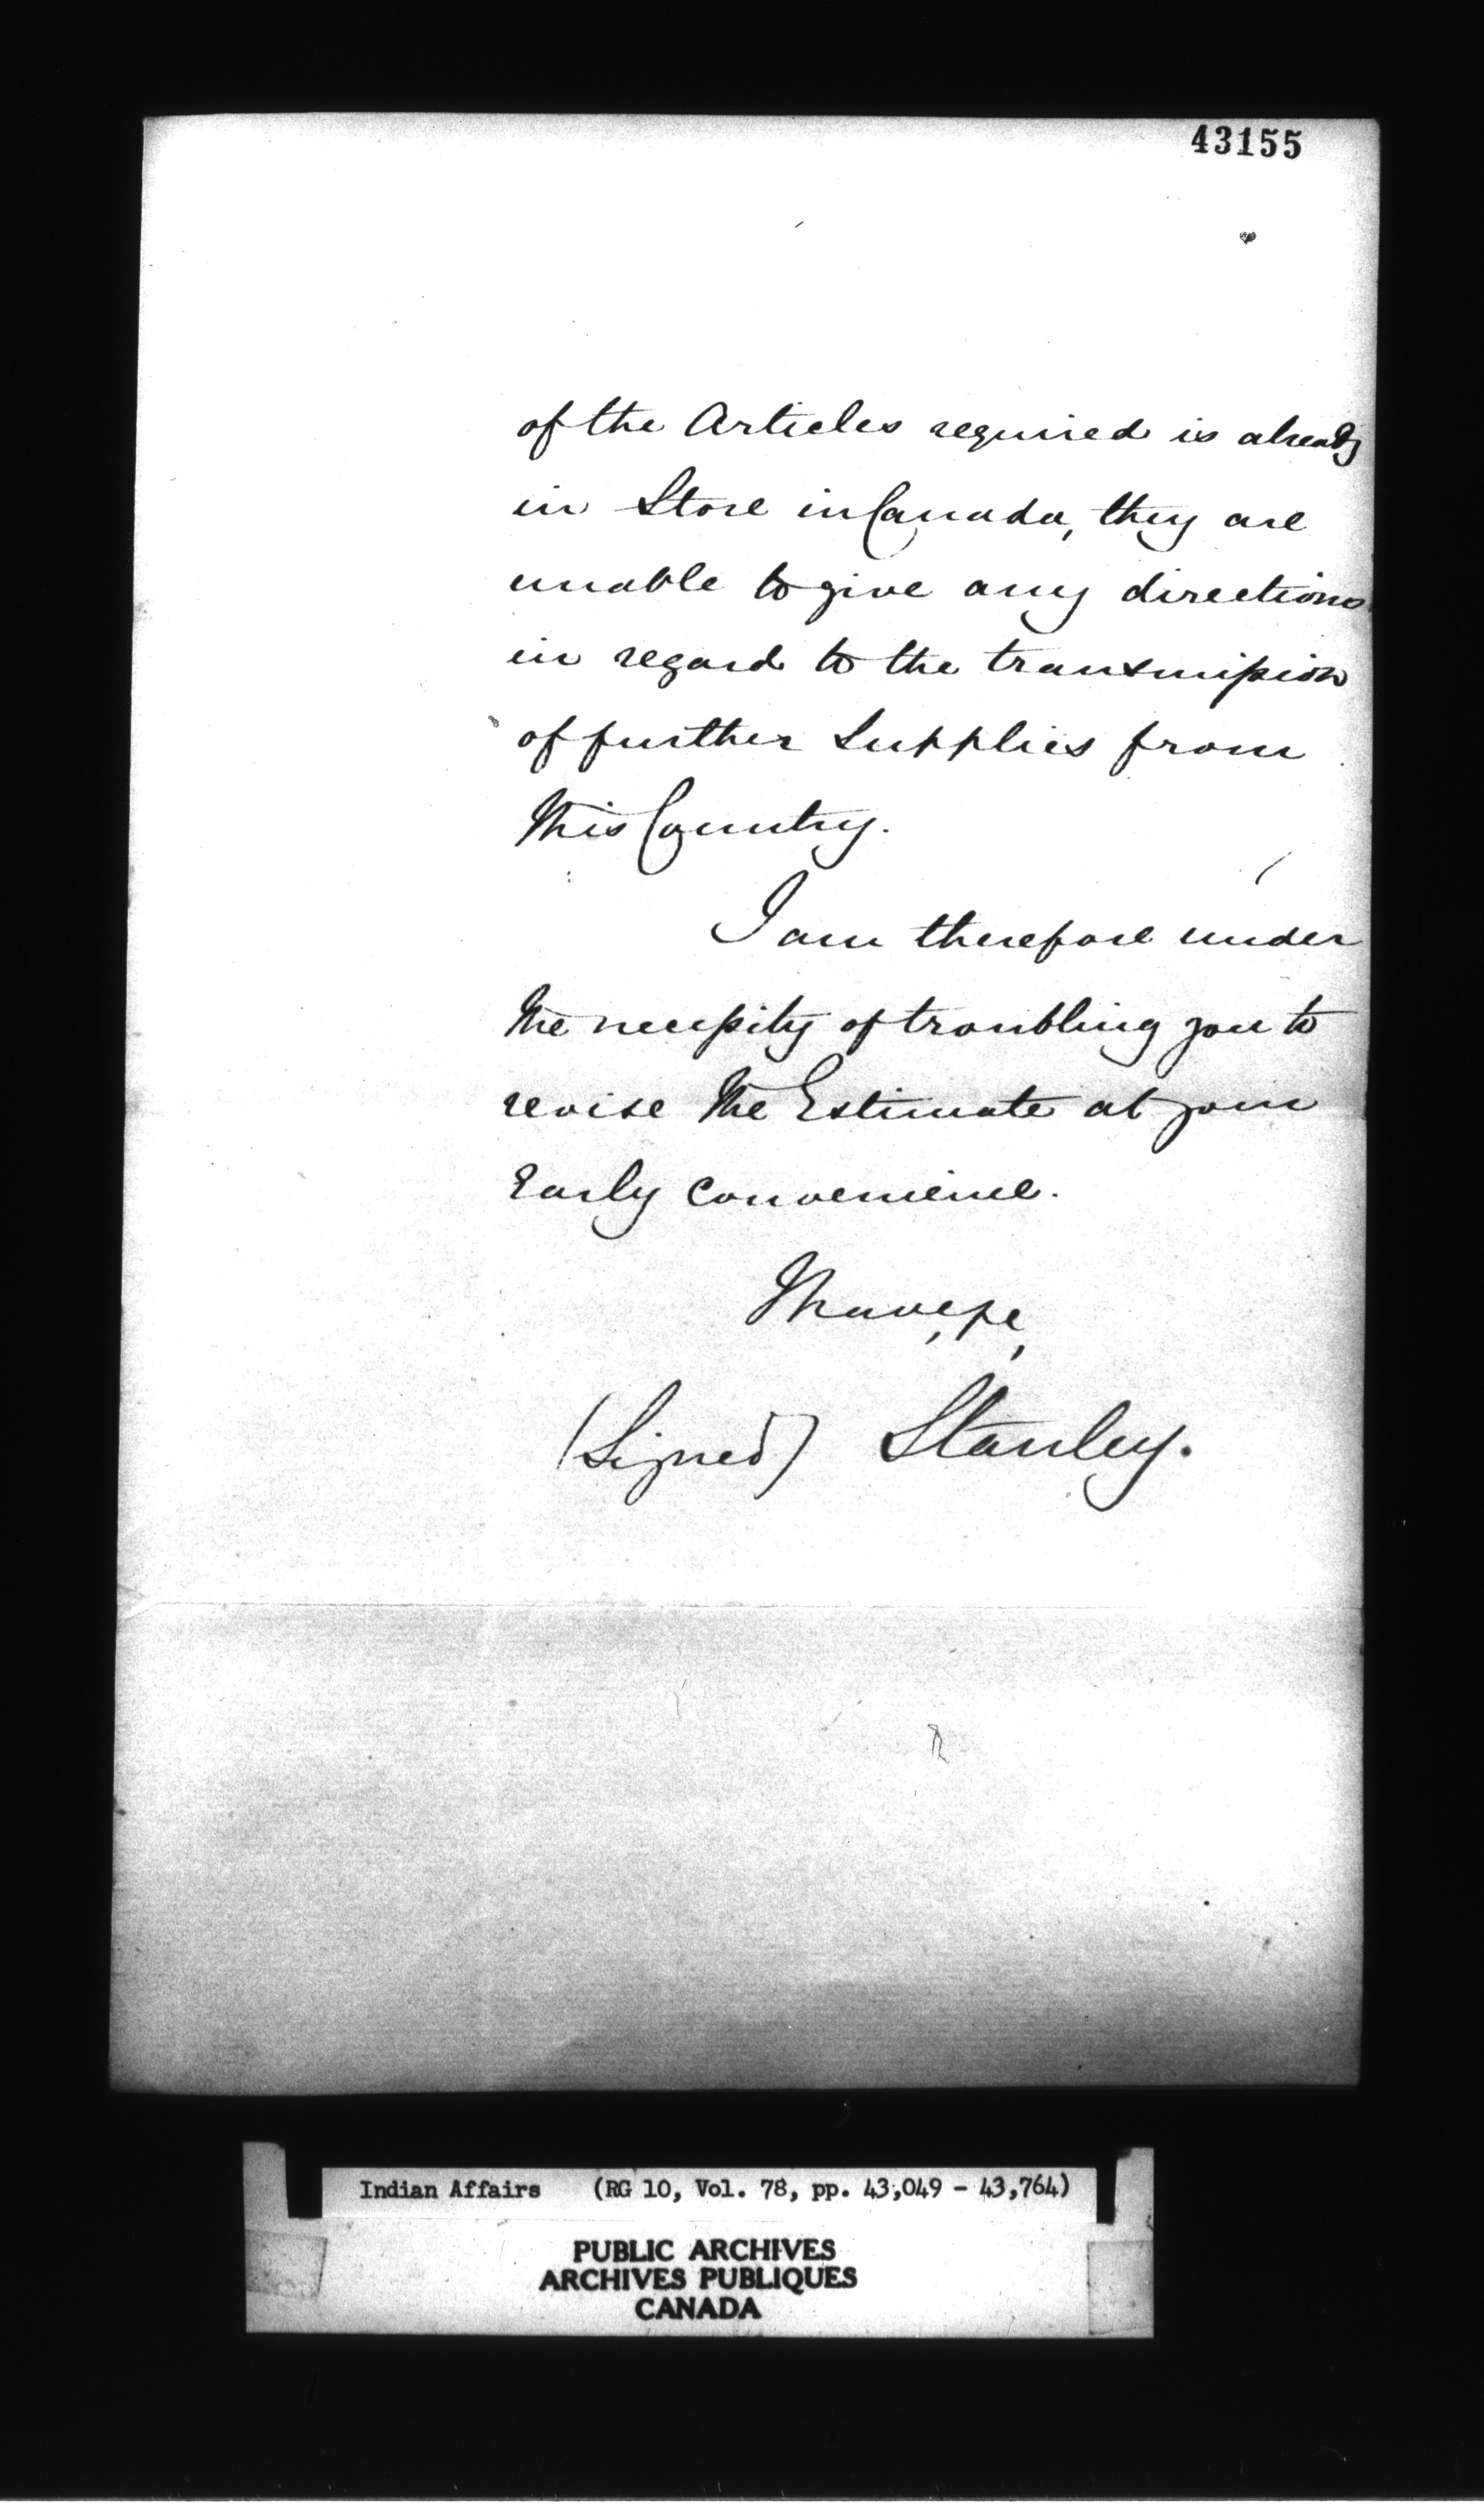 43155
of the Articles required is already
in Store in Canada, they are
unable to give any directions
in regard to the transmission
of further Supplies from
this Country.
I am therefore under
the necessity of troubling you to
revise the Estimate at your
Early convenience.
I have, &c,
(Signed) Stanley.
Indian Affairs (RG 10, Vol. 78, pp. 43,049 - 43,764)
PUBLIC ARCHIVES
ARCHIVES PUBLIQUES
CANADA